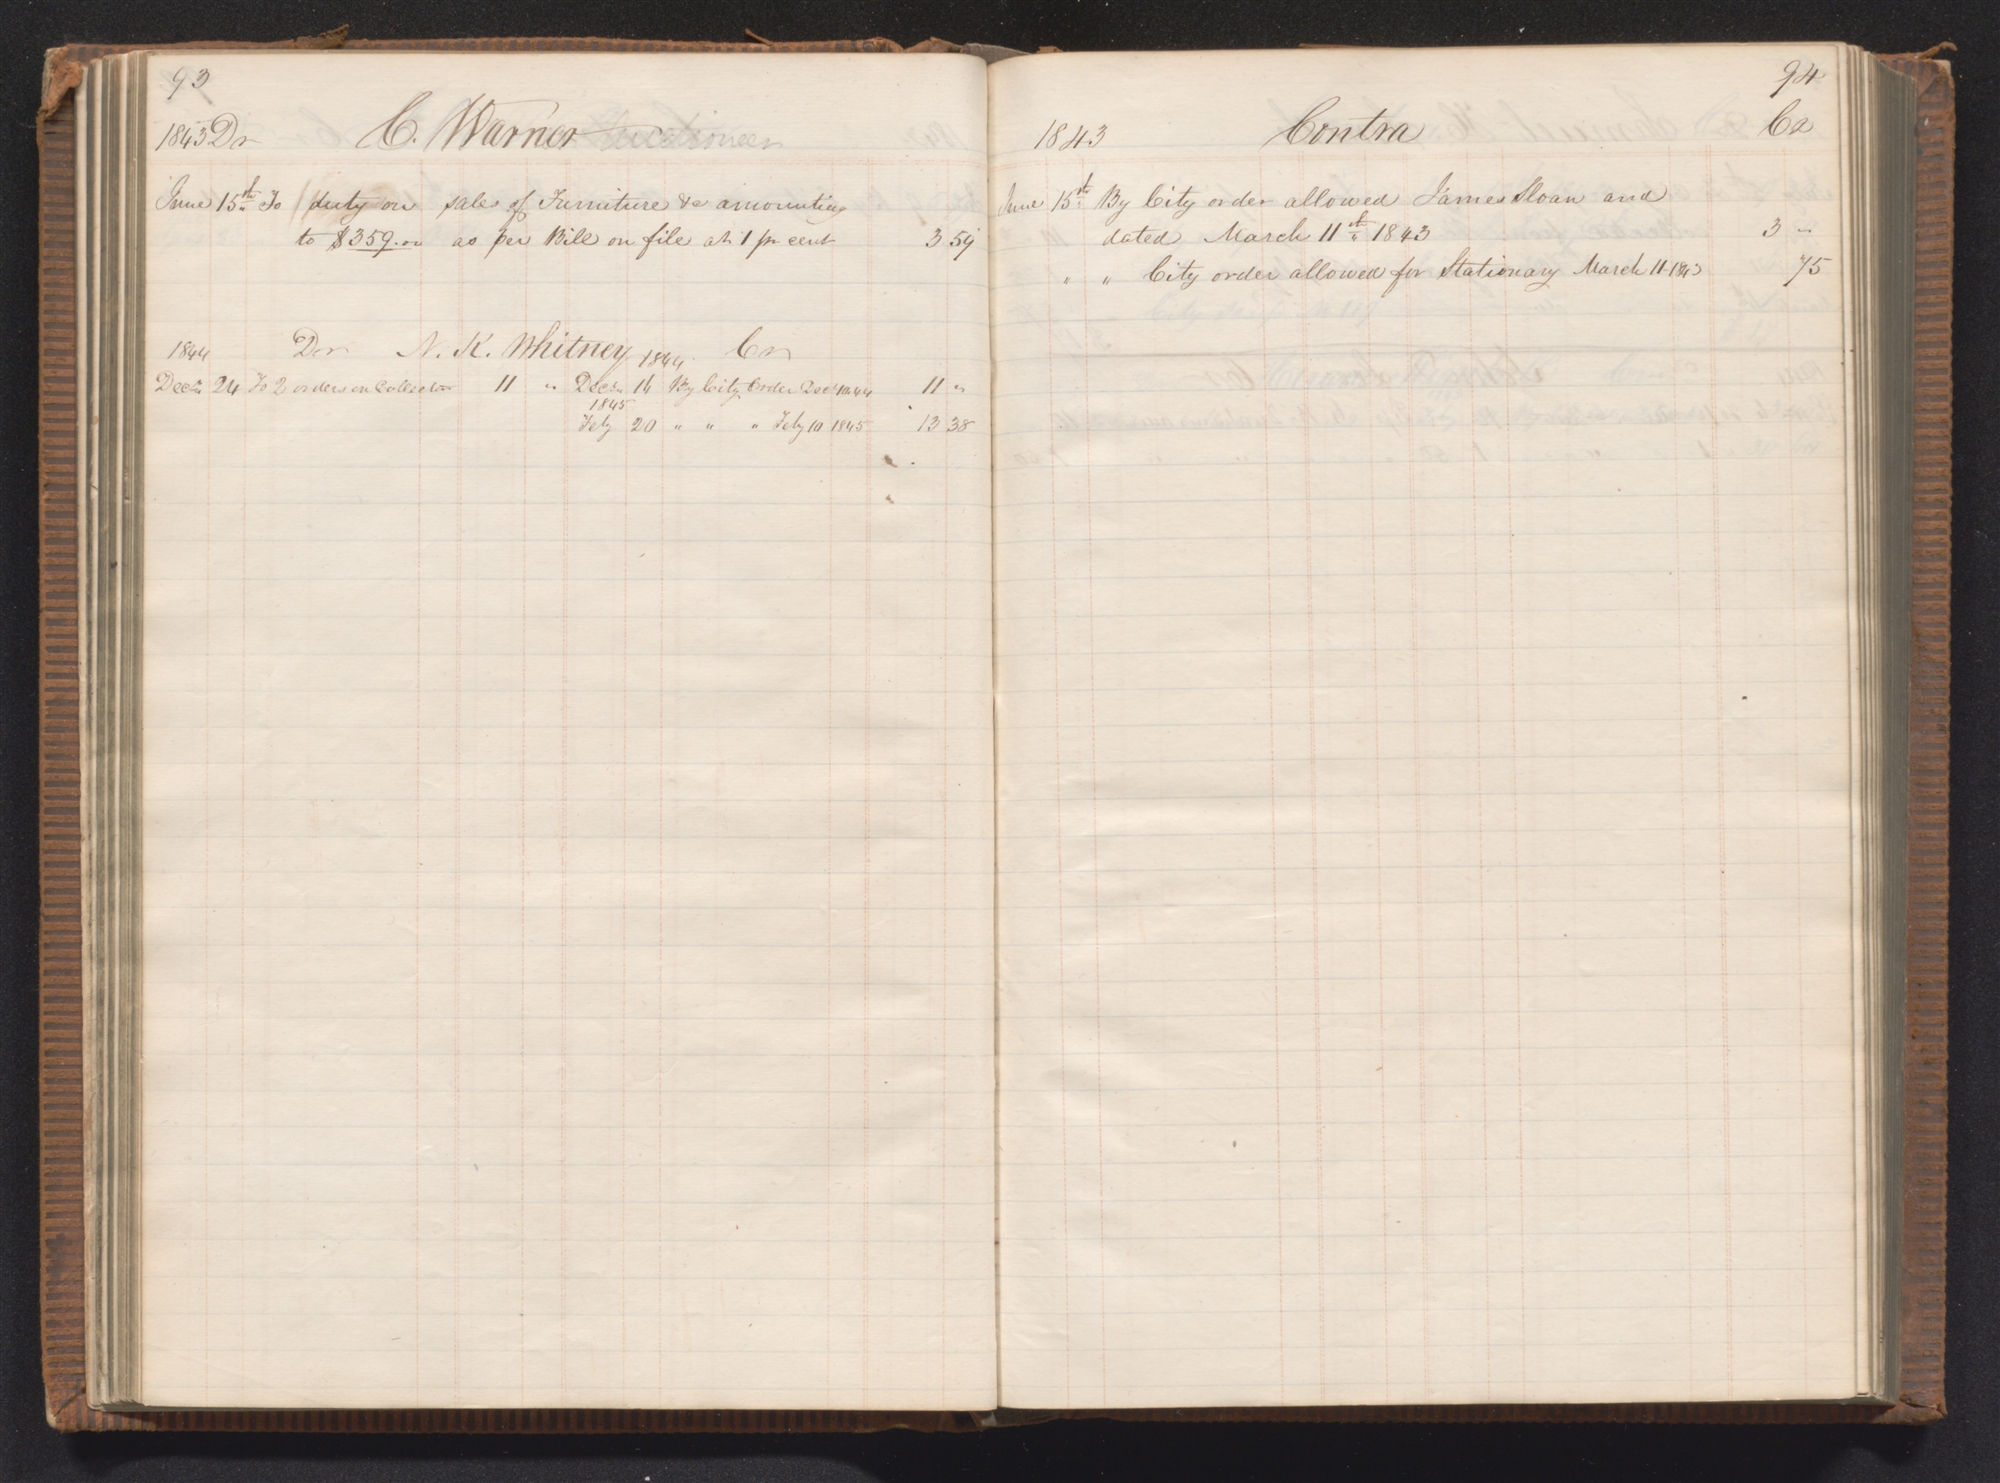 93
1843 Dr C. Warner Auctioneer
June 15th To duty on sales of Furniture &c amounting
to $359.00 as per Bill on file at 1 pr cent 3 59
1844 Dr N. K. Whitney 1844 Cr
Decr 24 To 2 orders on Collector 11 " Decr 16 By City Order Decr 10 1844 11 "
1845
Feby 20 " " " Feby 10 1845 13 38
94
1843 Contra Cr
June 15th By City order allowed James Sloan and
dated March 11th 1843 3 "
" " City order allowed for Stationary March 11 1843 75